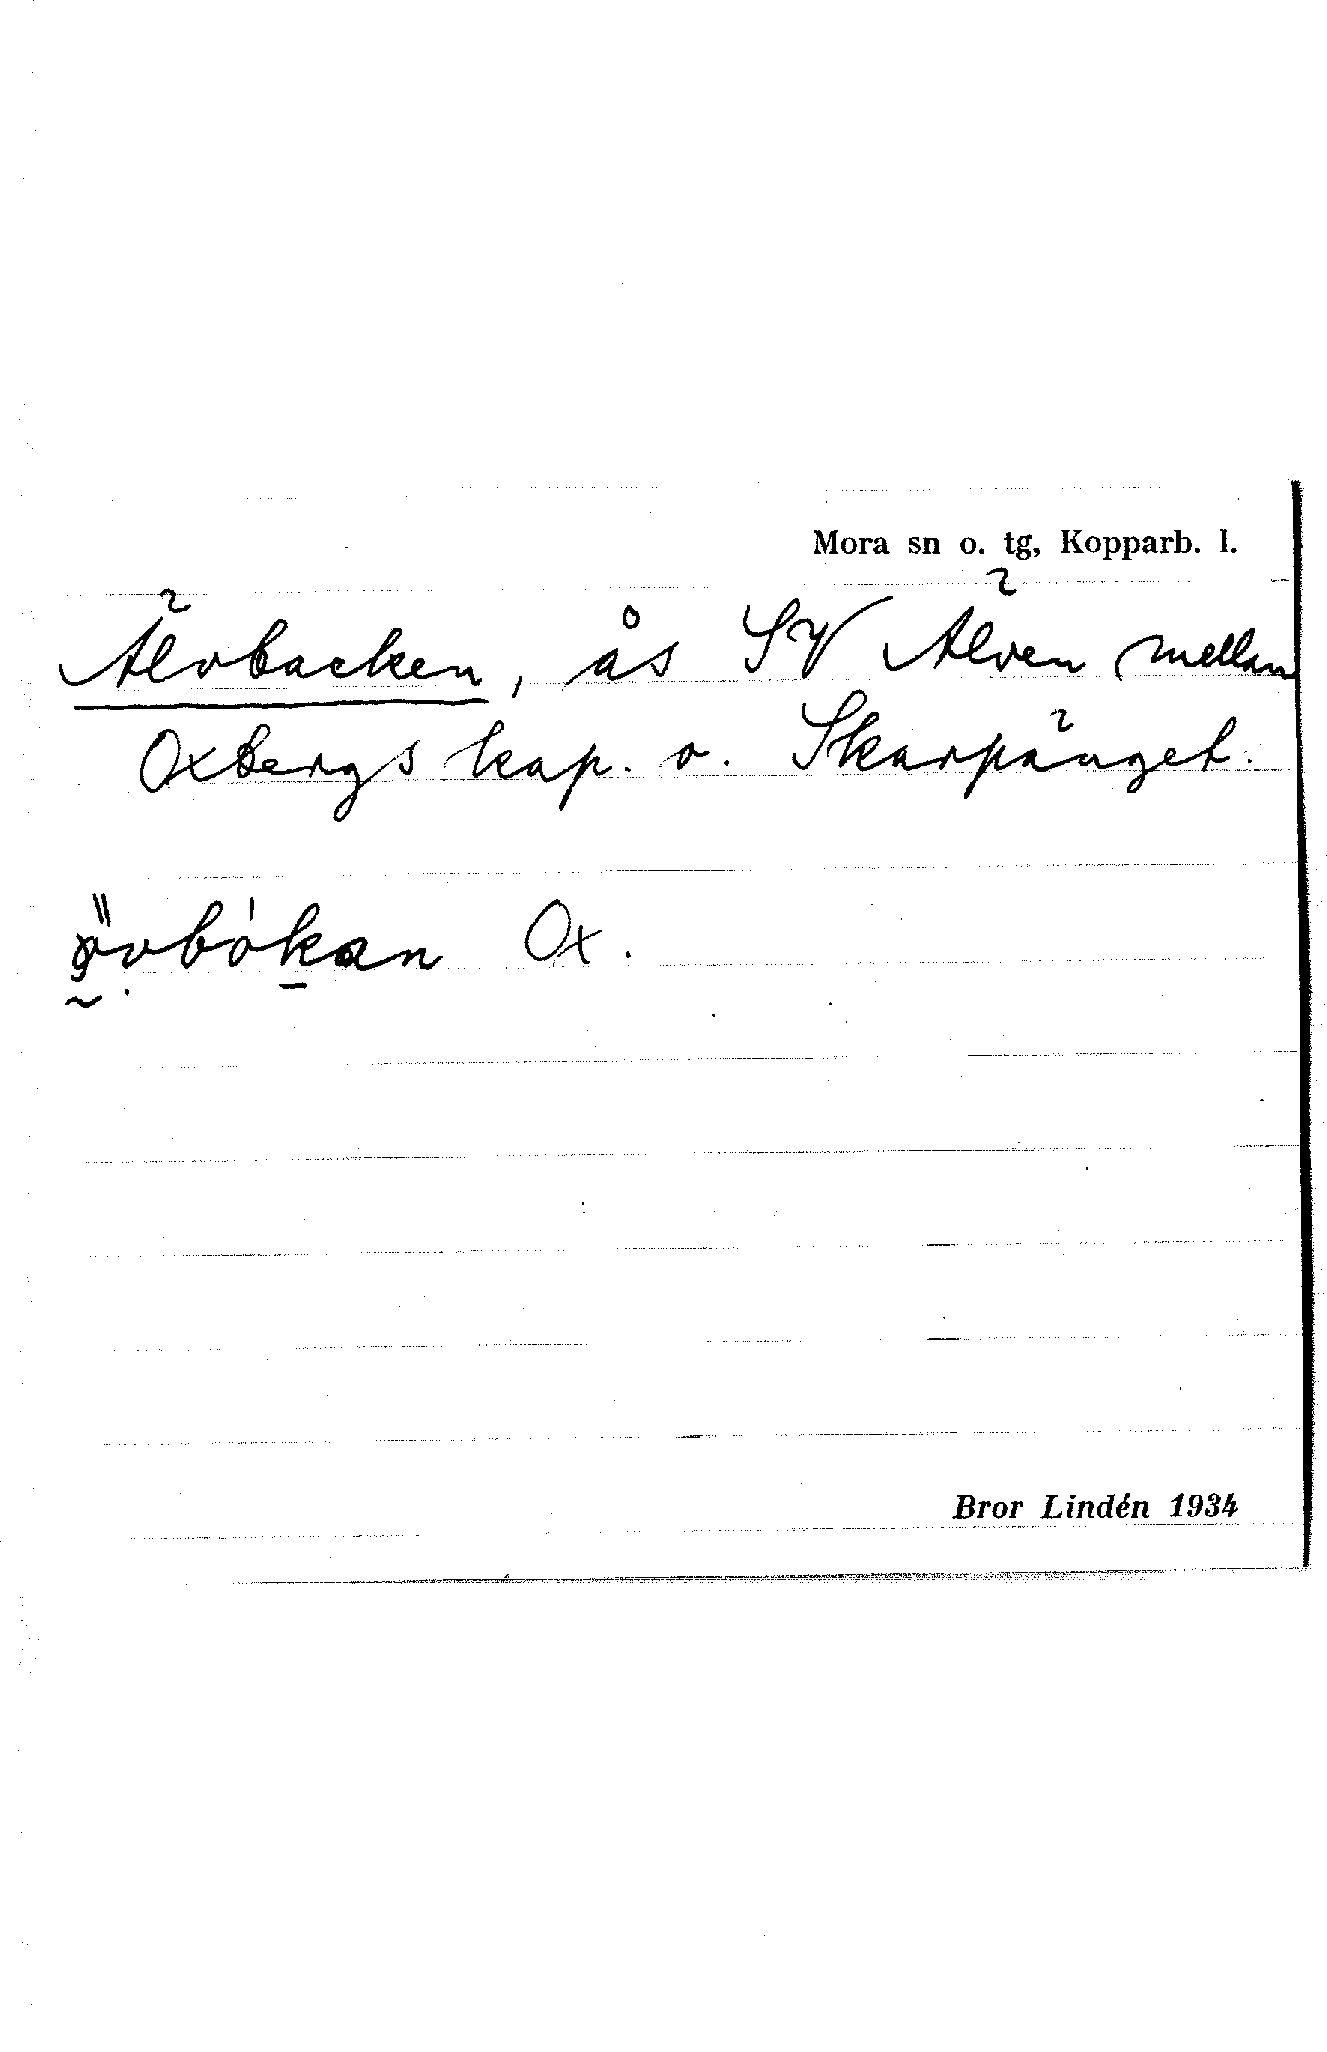 Mora sn o. tg, Kopparb. l.
Älvbacken, ås SV Älven mellan
Oxbergs kap. o. Skarpänget.
Ox.
Bror Lindén 1934